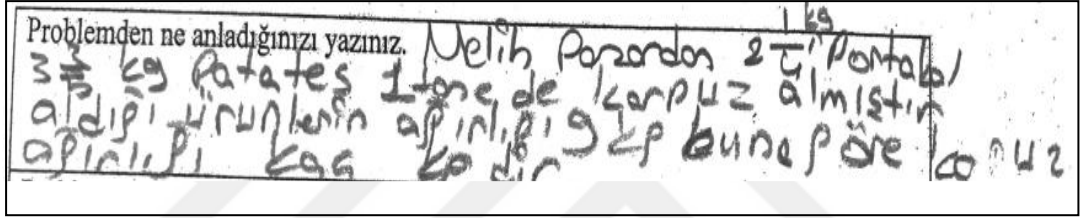 Problemden ne anladığınızı yazınız. Melih Pazardan 2 1/4 kg Portakal,
3 3/5 kg Patates 1 tane de karpuz almıştır
aldığı ürünlerin ağırlığı 9 kg buna göre kapuz
ağırlığı kaç kg dır